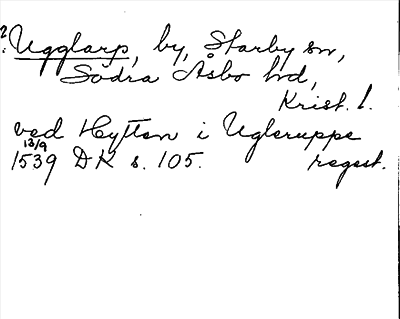 ? Ugglarp, by, Starby sn,
Södra Åsbo hd,
Krist. l.
ved Heytten i Ugleruppe
13/9
1539 DK s. 105. regest.